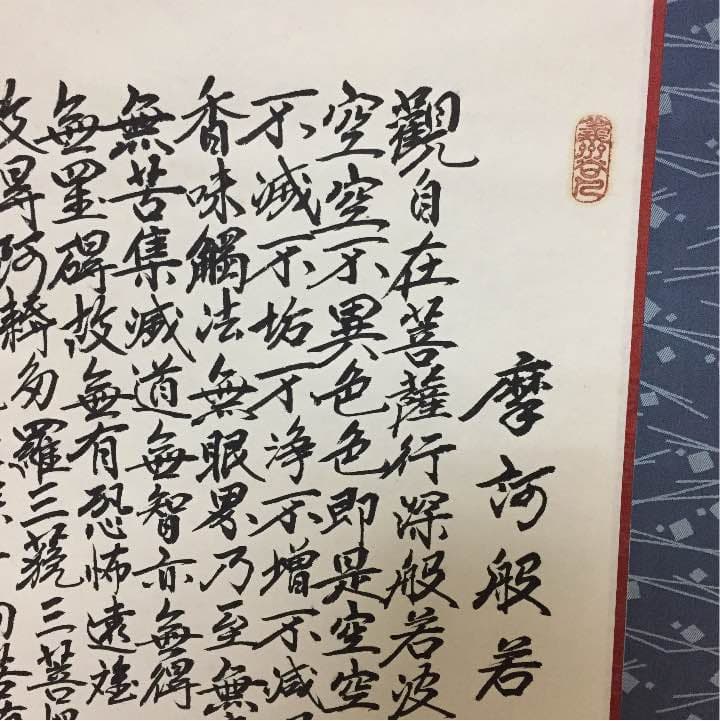 摩訶般若
觀自在菩薩行深般若波
空空不異色色即是空空
不滅不垢不浄不增不減
香味觸法無眼界乃至無
無苦集滅道無智亦無得
無罣碍故無有恐怖遠離
故得阿耨多羅三藐三菩提